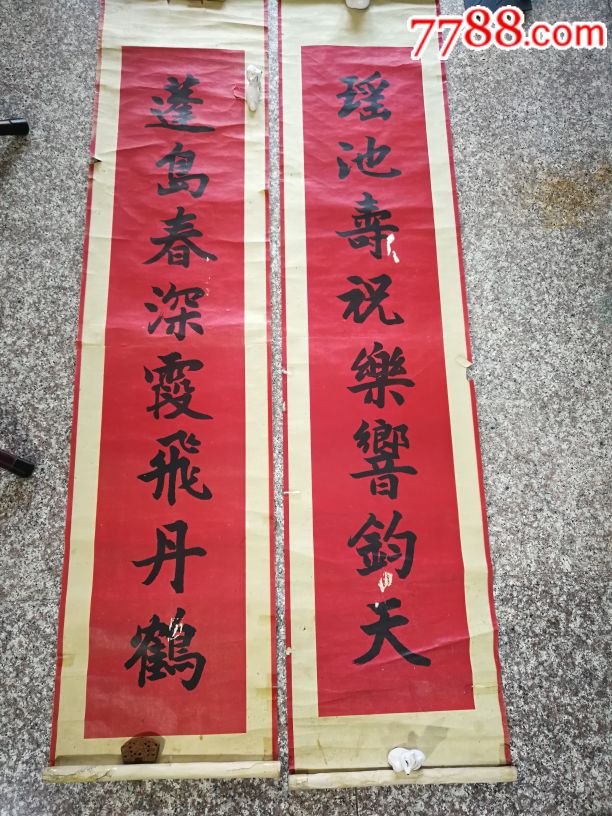 7788.com
瑶池壽祝樂響鈞天
蓬島春深霞飛丹鶴